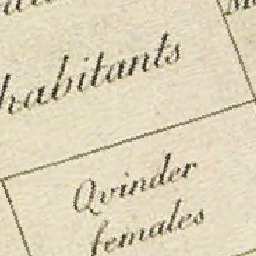 habitants
Qvinder
females